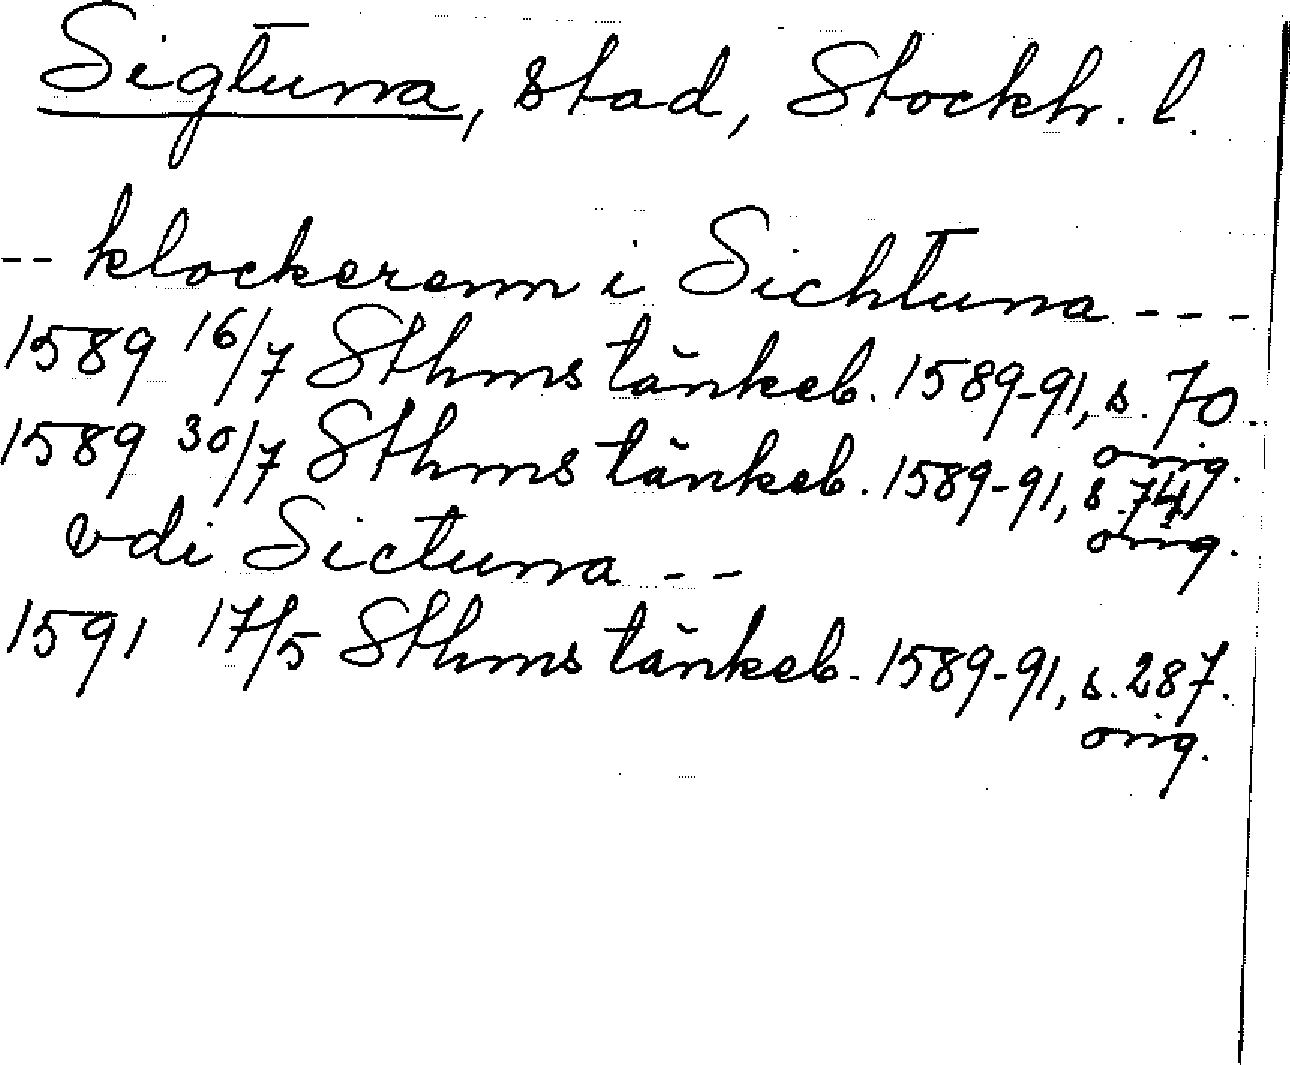 Sigtuna, stad, Stockh. l.
-- klockerenn i Sichtuna ---
1589 16/7 Sthms tänkeb. 1589-91, s. 70.
orig.
1589 30/7 Sthms tänkeb. 1589-91, s. 74
orig.
vdi Sictuna --
1591 17/5 Sthms tänkeb. 1589-91, s. 287.
orig.